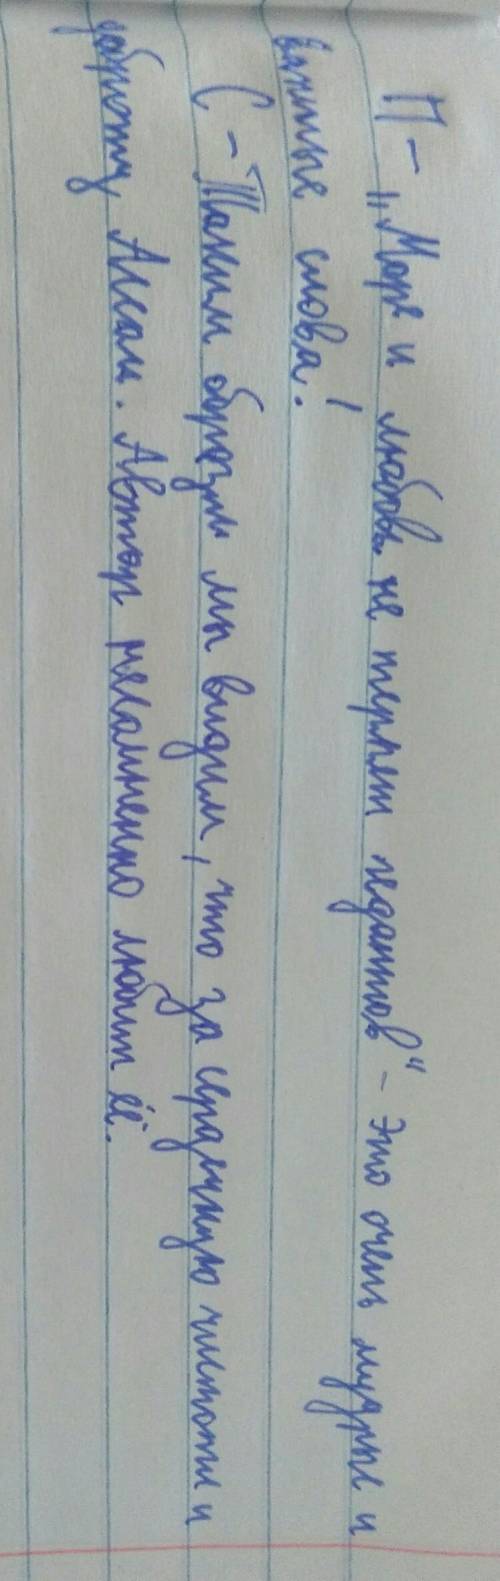 П - „Море и любовь не терпят педантов“ - это очень мудрые и
важные слова!
С - Таким образом мы видим, что за сердечную чистоту и
доброту, Ассоль. Автор несомненно любит её.